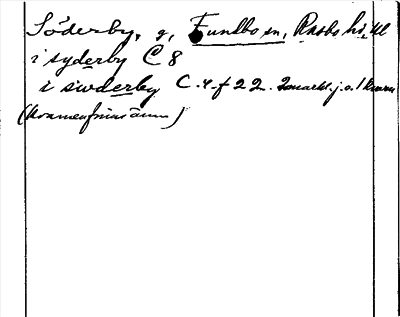 Söderby, g, Funbo sn, Rasbo hd, Ul
i syderby C 8
i siwderby C. 4. f 22. 2 markl. j. o. 1